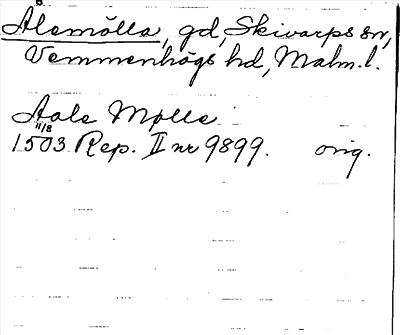 Ålamölla, gd, Skivarps sn,
Vemmenhögs hd, Malm. l.
Aale Mølle
11/8
1503 Rep. II nr 9899. orig.